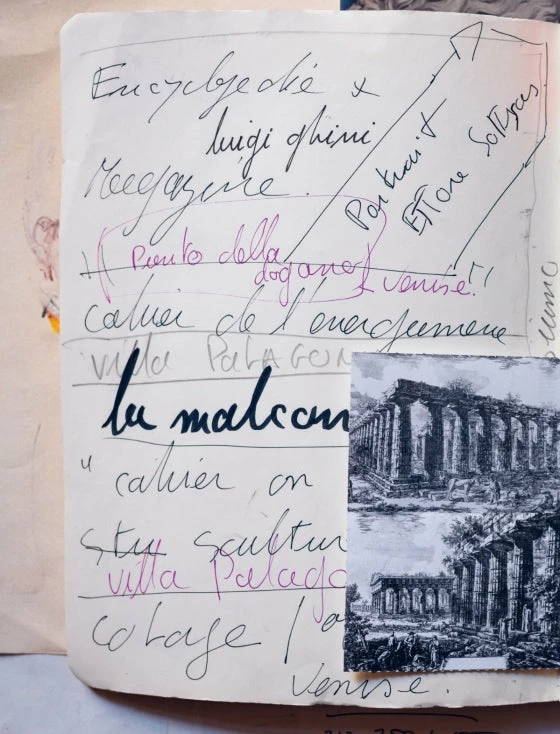 Encyclopedie x
luigi ghini
Magazine.
Portrait
Ettore Sottsass
Punto della
dogana
venise.
cahier de l'energumene
villa PALAGON
la malcon
" cahier on
stu scultur
villa Palago
Cotage /
Venise.